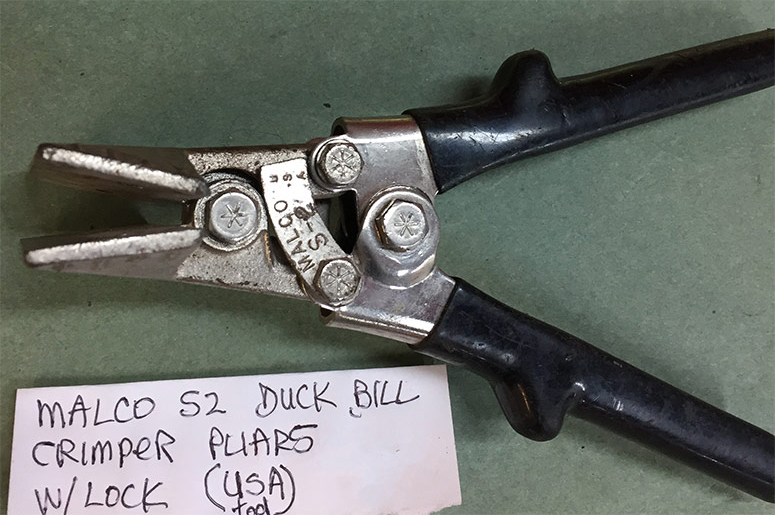 MALCO
S-2
U.S.A.
MALCO S2 DUCK BILL
CRIMPER PLIARS
W/LOCK (USA)
tool